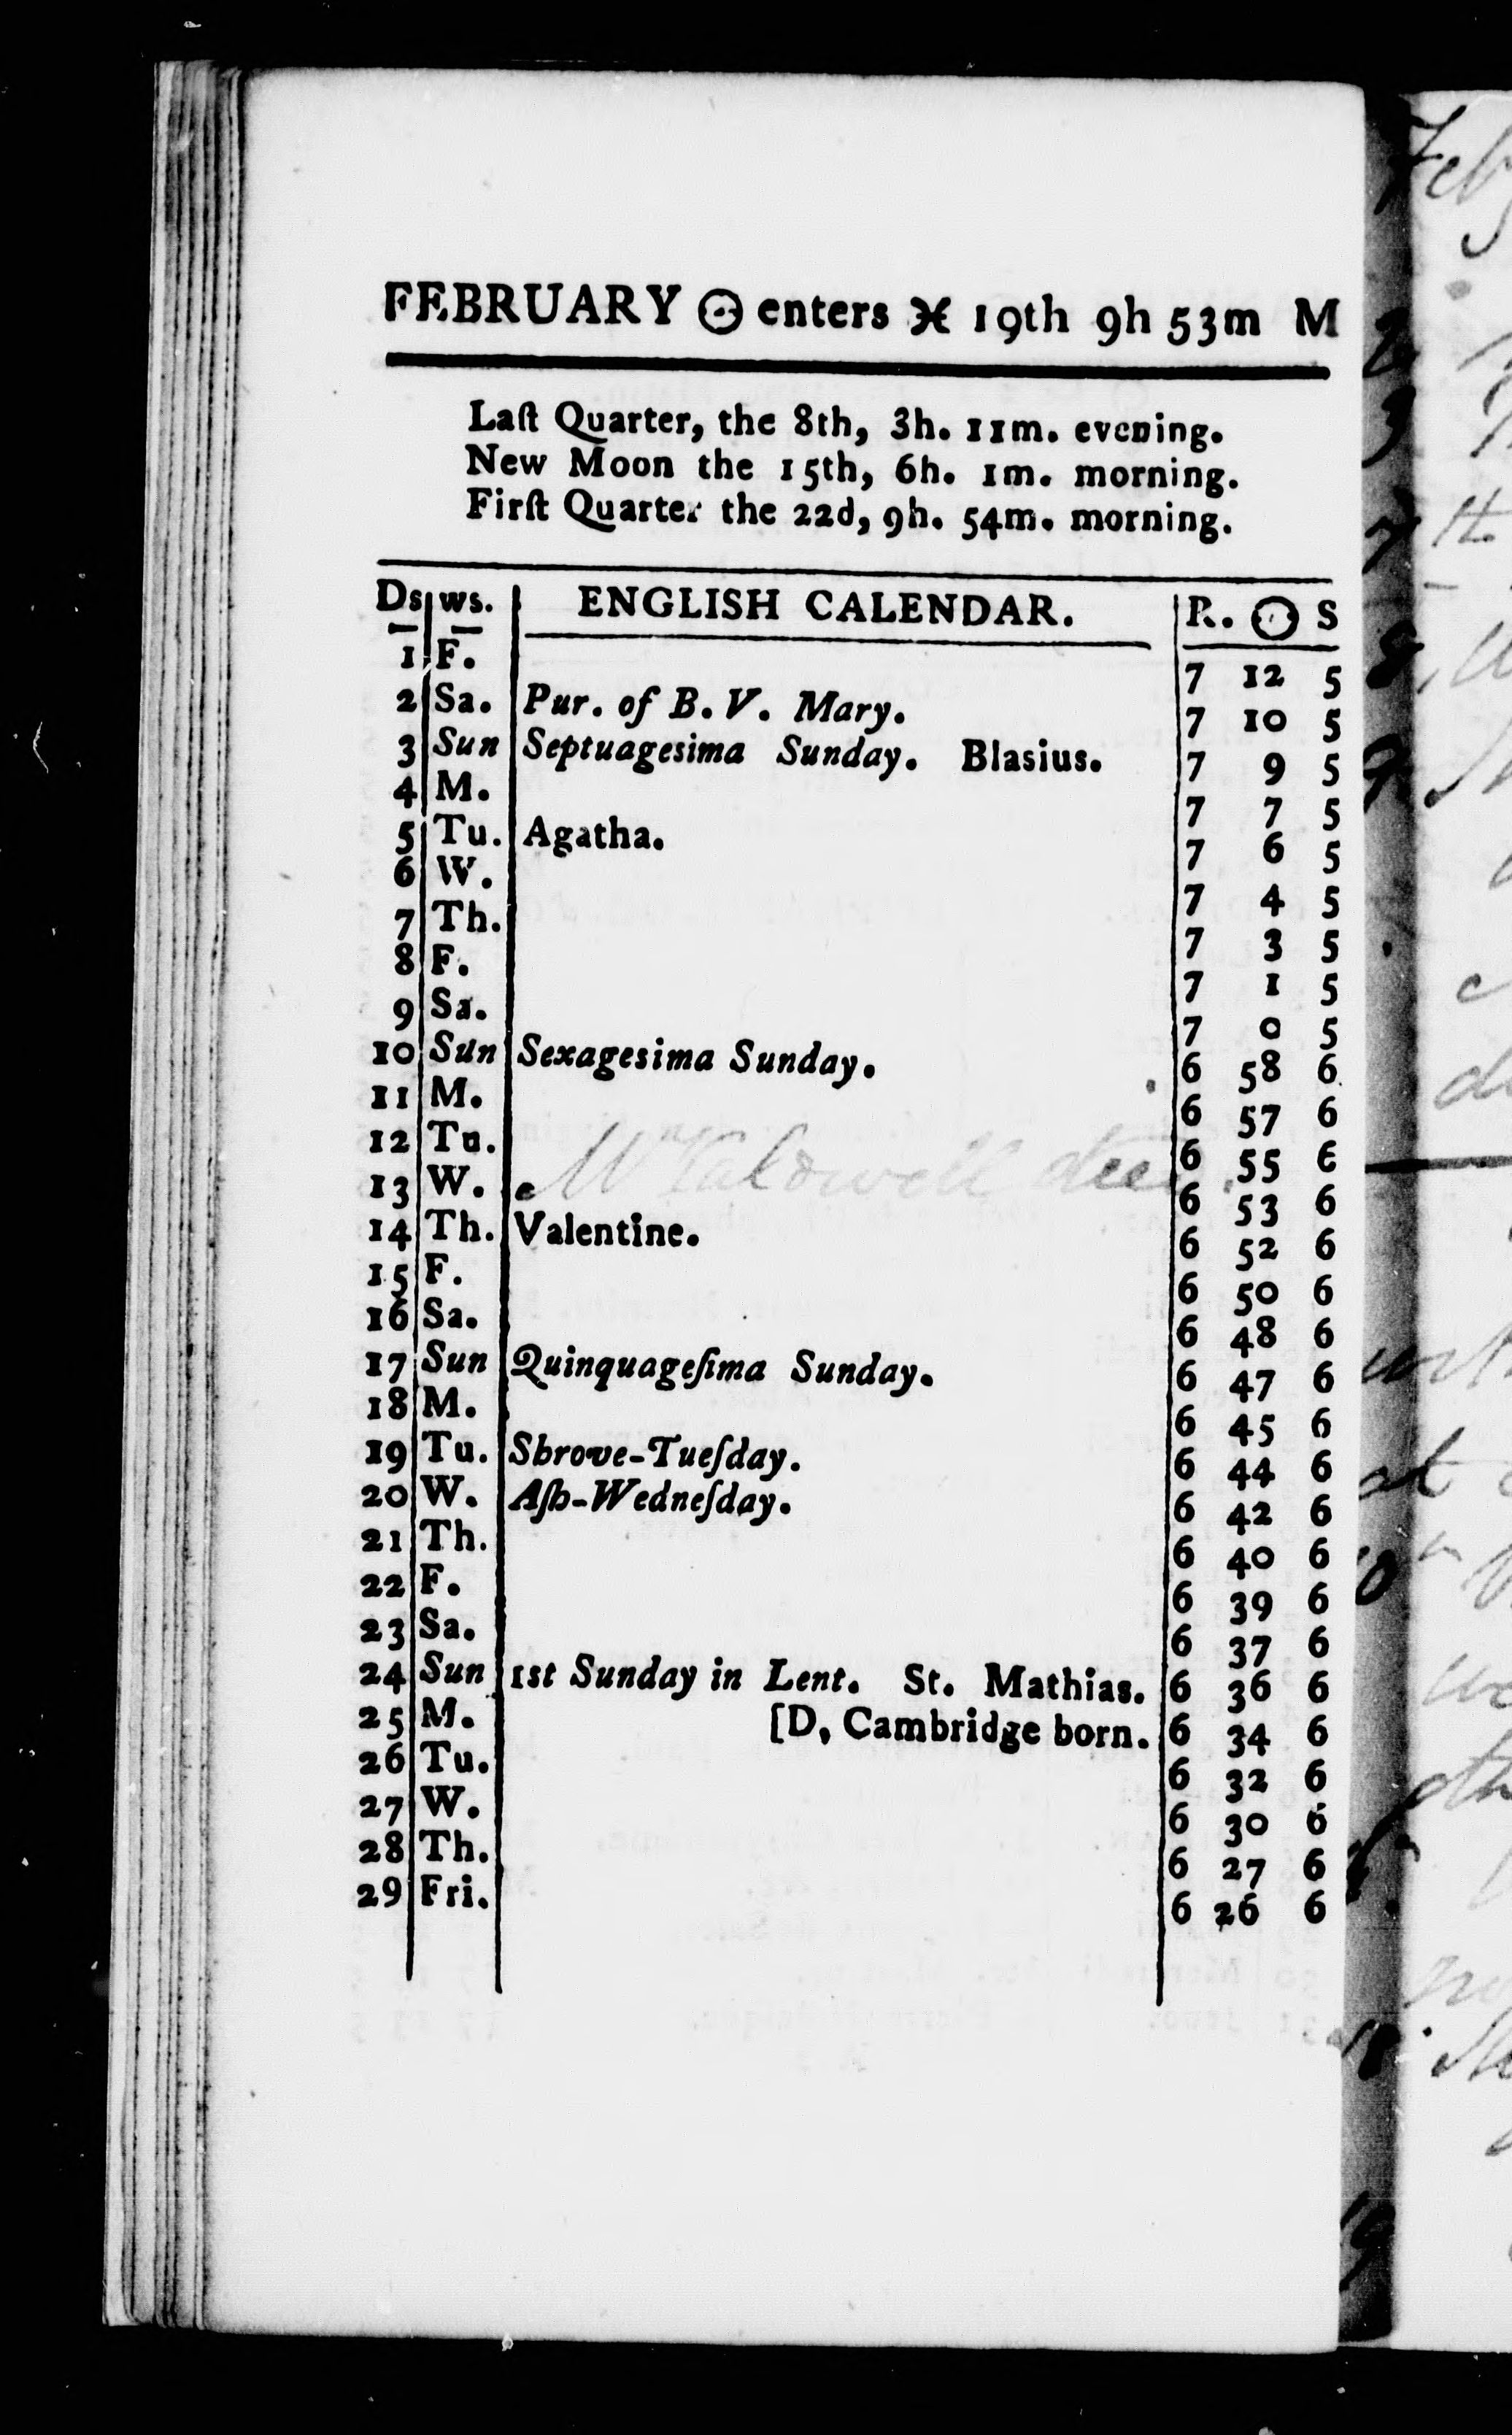 FEBRUARY ☉ enters ♓ 19th 9h 53m M
Laſt Quarter, the 8th, 3h. 11m. evening.
New Moon the 15th, 6h. 1m. morning.
Firſt Quarter the 22d, 9h. 54m. morning.
Ds ws. ENGLISH CALENDAR. R. ☉ S
1 F. 7 12 5
2 Sa. Pur. of B. V. Mary. 7 10 5
3 Sun Septuagesima Sunday. Blasius. 7 9 5
4 M. 7 7 5
5 Tu. Agatha. 7 6 5
6 W. 7 4 5
7 Th. 7 3 5
8 F. 7 1 5
9 Sa. 7 0 5
10 Sun Sexagesima Sunday. 6 58 6
11 M. 6 57 6
12 Tu. 6 55 6
13 W. Caldwell 6 53 6
14 Th. Valentine. 6 52 6
15 F. 6 50 6
16 Sa. 6 48 6
17 Sun Quinquageſima Sunday. 6 47 6
18 M. 6 45 6
19 Tu. Shrove-Tueſday. 6 44 6
20 W. Aſh-Wedneſday. 6 42 6
21 Th. 6 40 6
22 F. 6 39 6
23 Sa. 6 37 6
24 Sun 1st Sunday in Lent. St. Mathias. 6 36 6
25 M. [D, Cambridge born. 6 34 6
26 Tu. 6 32 6
27 W. 6 30 6
28 Th. 6 27 6
29 Fri. 6 26 6